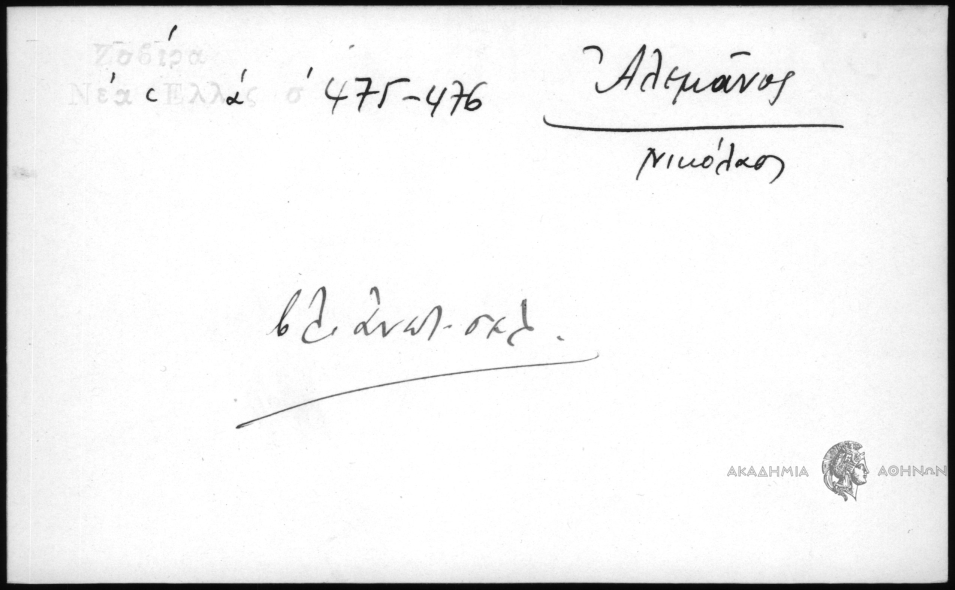 Ζαβίρα
Νέα Ἑλλάς σ 475-476
Ἀλεμᾶνος
Νικόλαος
βλ. ἀνωτ. σελ.
ΑΚΑΔΗΜΙΑ ΑΘΗΝΩΝ